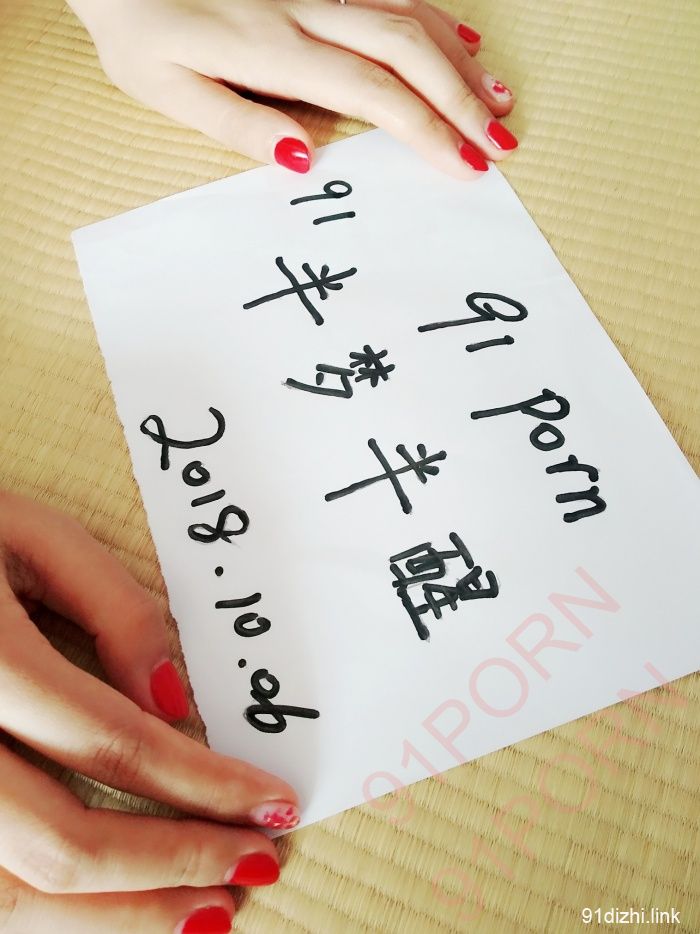 91 porn
91 半梦半醒
2018.10.06
91PORN
91PORN
91dizhi.link